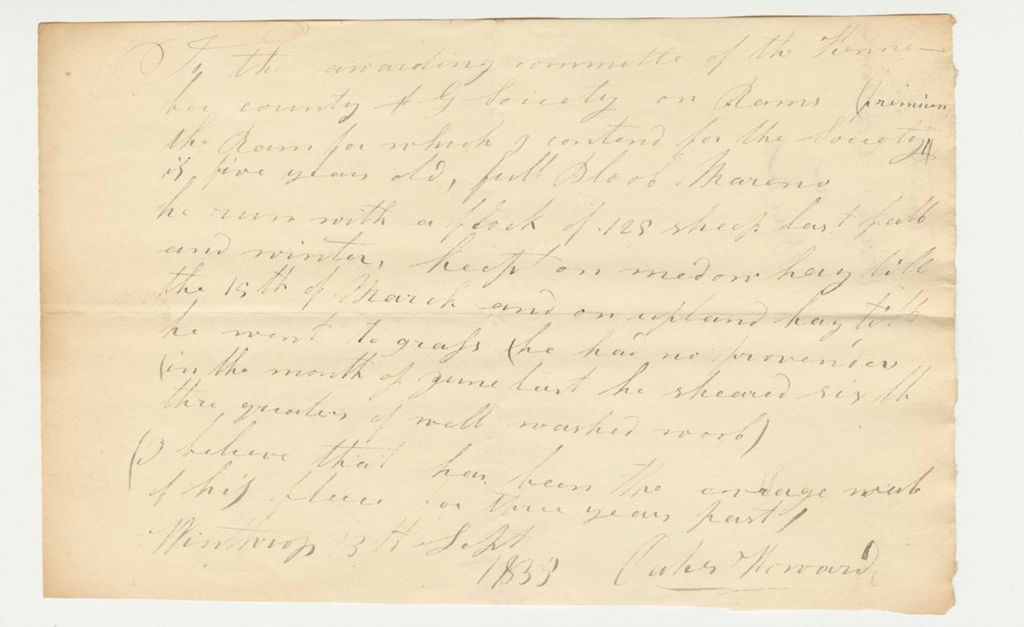 To the awarding committe of the Kenne-
bec county A G Society on Rams (primium
the Ram for which I contend for the Society,,
is five years old, full Blood Mareno
he run with a flock of 125 sheep last fall
and winter, keept on medow hay till
the 15th of March and on upland hay till
he went to grass (he had no provender
(in the month of June last he sheared six lb
thre quaters of well washed wool)
(I believe that has been the avrage
of his fleece for three years past,
Winthrop 13th Sept
1833 Oakes Howard